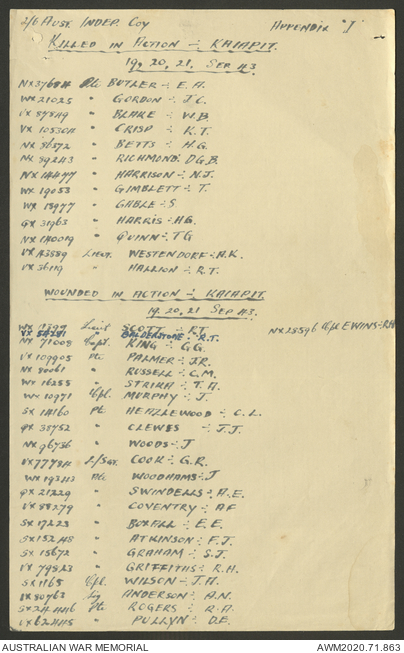 2/6 Aust. Indep. Coy Appendix "J"
Killed in Action :- Kaiapit.
19, 20, 21 Sep 43.
NX37684 Pte Butler :- E.A.
WX21025 " Gordon :- J.C.
VX87849 " Blake :- W.B.
VX105304 " Crisp :- K.T.
NX86372 " Betts :- H.G.
NX89243 " Richmond :- D.G.B.
NX14477 " Harrison :- N.J.
WX19053 " Gimblett :- T.
WX18977 " Gable :- S
QX31963 " Harris :- H.G.
NX140019 " Quinn :- T.G
VX43589 Lieut. Westendorf :- A.K.
VX36119 " Hallion :- R.T.
Wounded in Action :- Kaiapit.
19, 20, 21 Sep 43.
WX7397 Lieut Scott :- R.T. NX28596 Cpl Ewins :- R.H.
VX54281 " Balderstone :- R.T.
NX71008 Capt. King :- G.G.
VX109905 Pte Palmer :- J.R.
NX80061 " Russell :- C.M.
WX16255 " Strika :- T.A.
WX10971 Cpl. Murphy :- J.
SX14160 Pte Heazlewood :- C.L.
QX38752 " Clewes :- J.J.
NX96736 " Woods :- J
VX77784 L/Sgt. Cook :- G.R.
WX19342 Pte Woodhams :- J
QX21229 " Swindells :- A.E.
VX88279 " Coventry :- A.F
SX17223 " Boxall :- E.E.
SX15248 " Atkinson :- F.J.
SX15672 " Graham :- S.J.
VX79523 " Griffiths :- R.H.
SX1165 Cpl. Wilson :- J.H.
VX80762 Sig Anderson :- A.N.
SX24446 Pte Rogers :- R.A.
VX62445 " Pullyn :- D.E.
AUSTRALIAN WAR MEMORIAL AWM2020.71.863